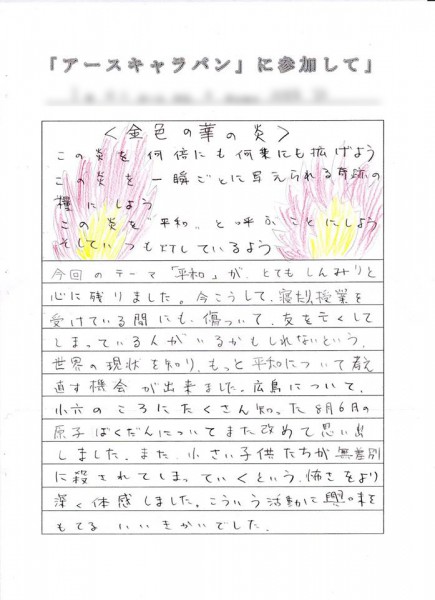 「アースキャラバン」に参加して」
<金色の華の炎>
この炎を 何倍にも何乗にも拡げよう
この炎を 一瞬ごとに与えられる奇跡の
糧にしよう
この炎を"平和"と呼ぶことにしよう
そしていつも灯しているよう
今回のテーマ「平和」が、とてもしんみりと
心に残りました。今こうして、寝たり授業を
受けている間にも、傷ついて、友を亡くして
しまっている人がいるかもしれないという、
世界の現状を知り、もっと平和について考え
直す機会が出来ました。広島について、
小六のころにたくさん知った8月6日の
原子ばくだんについてまた改めて思い出
しました。また、小さい子供たちが無差別
に殺されてしまっていくという、怖さをより
深く体感しました。こういう活動に興味を
もてる いいきかいでした。